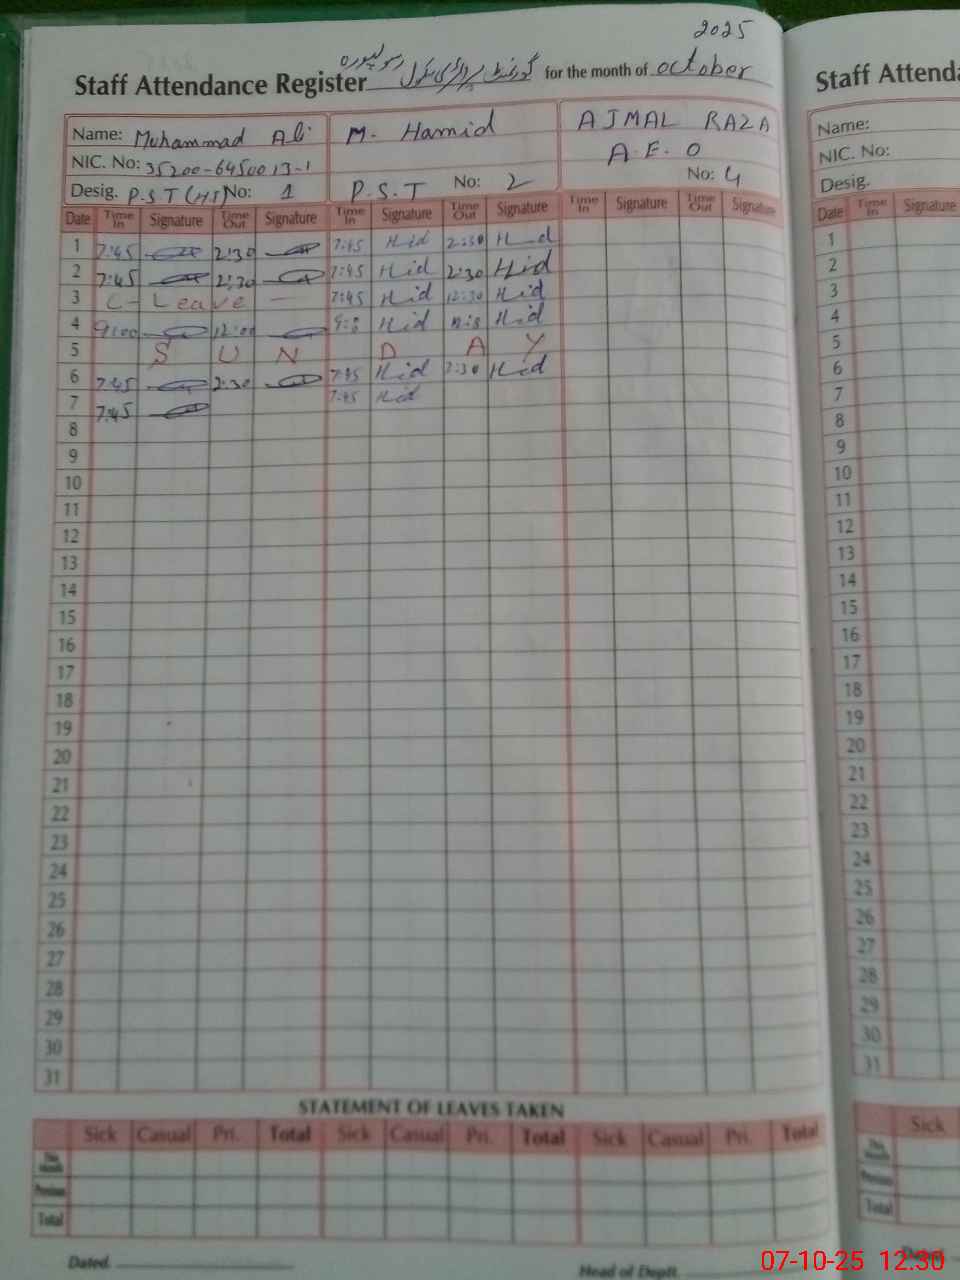 2025
Staff Attendance Register گورنمنٹ پرائمری سکول رسولپورہ for the month of October
Name: Muhammad Ali M. Hamid AJMAL RAZA
NIC. No: 35200-6450013-1 A.E.O
Desig. P.S.T (H.T) No: 1 P.S.T No: 2 No: 4
Date Time In Signature Time Out Signature Time In Signature Time Out Signature Time In Signature Time Out Signature
1 7:45 2:30 7:45 Hid 2:30 Hid
2 7:45 2:30 7:45 Hid 2:30 Hid
3 C-Leave 7:45 Hid 12:30 Hid
4 9:00 12:00 Hid Hid
5 S U N D A Y
6 7:45 2:30 7:45 Hid 2:30 Hid
7 7:45 7:45 Hid
8
9
10
11
12
13
14
15
16
17
18
19
20
21
22
23
24
25
26
27
28
29
30
31
STATEMENT OF LEAVES TAKEN
Sick Casual Pri. Total Sick Casual Pri. Total Sick Casual Pri. Total
This Month
Previous
Total
Dated Head of Deptt.
Staff Attenda
Name:
NIC. No:
Desig.
Date Time In Signature
1
2
3
4
5
6
7
8
9
10
11
12
13
14
15
16
17
18
19
20
21
22
23
24
25
26
27
28
29
30
31
Sick
This Month
Previous
Total
Dated
07-10-25 12.30